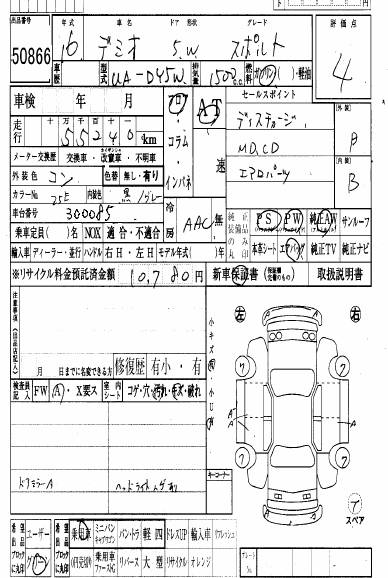 出品番号 年式 車名 ドア 形状 グレード 評価点
50866 16 デミオ 5.W スポルト 4
車歴 型式 UA-DY5W 排気量 1500cc ガソリン( )・軽油
車検 年 月 フロア・コラム・インパネ AT 速 セールスポイント
走行 十 万 千 百 十 55240km ディスチャージ 外装 A
メーター交換歴 交換車・改竄車・不明車 MD,CD
外装色 コン 色替 無し・有り エアロパーツ 内装 B
カラーNo 25E 内装色 黒/グレー
車台番号 300085 冷房 AAC 無 純正装備品のみ〇印 PS PW 純正AW サンルーフ
乗車定員( )名 NOX 適合・不適合 本革シート エアバッグ 純正TV 純正ナビ
輸入車 ディーラー・並行 ハンドル 右H・左H モデル年式( )年
※リサイクル料金預託済金額 10,780円 新車保証書(保証継承交付のもの) 取扱説明書
注意事項(出品店記入)
左 右
月 日までに名変できる方 修復歴 有 小・有
検査員記入 FW A・X要ス 室内シート コゲ・穴・汚れ・キズ・破れ
キーコーナー
ドアミラーA ヘッドライト
スペア
希望出品ブロックに〇印 ユーザー グリーン 希望出品ブロックに〇印 乗用車 ミニバン バントラ 軽四 ドレスUP 輸入車 リフレッシュ
リバース 大型 リサイクル オレンジ